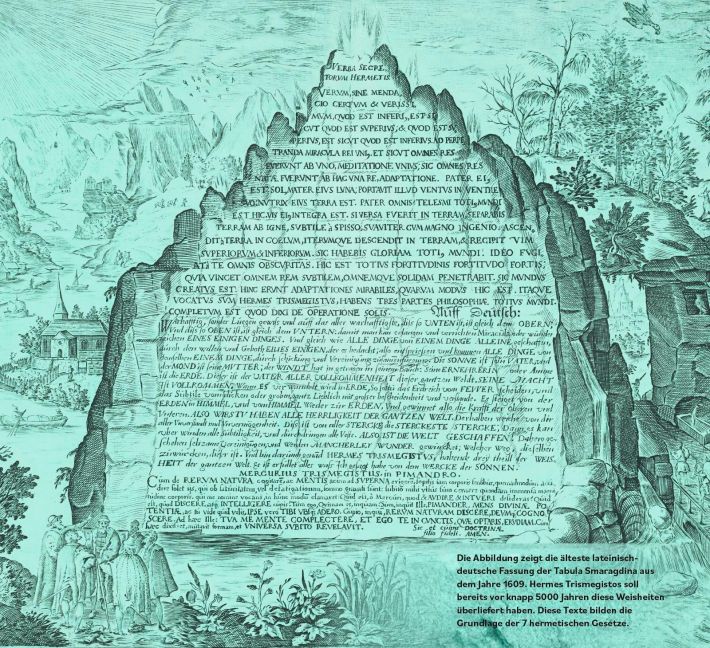 VERBA SECRE,
TORUM HERMETIS.
VERUM, SINE MENDA,
CIO CERTUM & VERISSI,
MUM, QUOD EST INFERI9, EST SI,
CUT QUOD EST SUPERIUS, & QUOD EST SU
PERIUS, EST SICUT QUOD EST INFERIUS AD PERPE
TRANDA MIRACULA REI UNI9, ET SICUT OMNES RES
FUERUNT AB UNO, MEDITATIONE UNIUS, SIC OMNES RES
NATÆ FUERUNT AB HAC UNA RE, ADAPTATIONE. PATER EI9
EST SOL, MATER EIUS LUNA; PORTAVIT ILLUD VENTUS IN VENTRE
SUO, NUTRIX EIUS TERRA EST. PATER OMNIS TELESMI TOTI9 MUNDI
EST HIC. VIS EI9 INTEGRA EST. SI VERSA FUERIT IN TERRAM, SEPARABIS
TERRAM AB IGNE, SUBTILE à SPISSO, SUAVITER CUM MAGNO INGENIO. ASCEN,
DIT à TERRA IN COELUM, ITERUMQUE DESCENDIT IN TERRAM, & RECIPIT VIM
SUPERIORUM & INFERIORUM. SIC HABEBIS GLORIAM TOTI9 MUNDI. IDEO FUGI,
ET à TE OMNIS OBSCURITAS. HIC EST TOTIUS FORTITUDINIS FORTITUDO FORTIS,
QUIA VINCET OMNEM REM SUBTILEM, OMNEMQUE SOLIDAM PENETRABIT. SIC MUNDUS
CREATUS EST. HINC ERUNT ADAPTATIONES MIRABILES, QUARUM MODUS HIC EST. ITAQUE
VOCATUS SUM HERMES TRISMEGISTUS, HABENS TRES PARTES PHILOSOPHIÆ TOTIUS MUNDI.
COMPLETUM EST QUOD DIXI DE OPERATIONE SOLIS. Auff Deutsch:
Warhafftig, sonder Liegen gewiß und auff das aller warhafftigste, diß so UNTEN ist, ist gleich dem OBERN;
Und diß so OBEN ist, ist gleich dem UNTERN, damit man kan erlangen und verrichten Miracula oder wunder,
zeichen EINES EINIGEN DINGES. Und gleich wie ALLE DINGE von EINEM DINGE ALLEINE, geschaffen,
durch den willen und Geboth EINES EINIGEN, der es bedacht, also entspriessen und kommen ALLE DINGE von
demselben EINEM DINGE, durch schickung und Vereinigung zusammenfügung. Die SONNE ist sein VATER, und
der MOND ist seine MUTTER, der WINDT hat in getragen in seinem Bauche. Sein ERNEHRERIN oder Amme
ist die ERDE. Dieser ist der VATER ALLER VOLLKOMMENHEIT dieser gantzen Welt. SEINE MACHT
IST VOLLKOMMEN, Wenn ES
das Subtile vom
ERDEN in HIMMEL, und vom HIMMEL Wieder zur ERDEN, Und gewinnet also die Kraft der Obern und
Untern. ALSO WIRSTU HABEN ALLE HERRLIGKEIT DER GANTZEN WELT. Derhalben weiche von dir
aller Unverstandt und Unvermögenheit. Diß ist von aller STERCKE die STERCKESTE STERCKE, Dann es kan
uber winden alle Subtiligkeit, und durchdringen alle Veste. ALSO IST DIE WELT GESCHAFFEN. Dahero ge,
schehen seltzame Vereinigungen, und werden MANCHERLEY WUNDER gewircket, Welcher Weg, dieselben
zu wircken, dieser ist. Und bin darumb genandt HERMES TRISMEGISTUS, habendt drey theill der WEIS,
HEIT der gantzen Welt. Es ist erfüllet alles was Ich gesagt habe von dem WERCKE der SONNEN.
MERCURIUS TRISMEGISTUS, in PIMANDRO.
Cum de RERUM NATURA cogitarem, ac MENTIS aciem ad SUPERNA erigerem,
ENTIÆ, TIBI UBIQ3 ADERO. Cupio, inquam, RERUM NATURAM DISCERE, DEUMQ3 COGNO
SCERE. Ad hæc Ille: TUA ME MENTE COMPLECTERE, ET EGO TE IN CUNCTIS, QUÆ OPTARIS, ERUDIAM. Cum
hæc dixisset, mutavit formam, et UNIVERSA SUBITO REVELAVIT.
AMEN.
Die Abbildung zeigt die älteste lateinisch-
deutsche Fassung der Tabula Smaragdina aus
dem Jahre 1609. Hermes Trismegistos soll
bereits vor knapp 5000 Jahren diese Weisheiten
überliefert haben. Diese Texte bilden die
Grundlage der 7 hermetischen Gesetze.